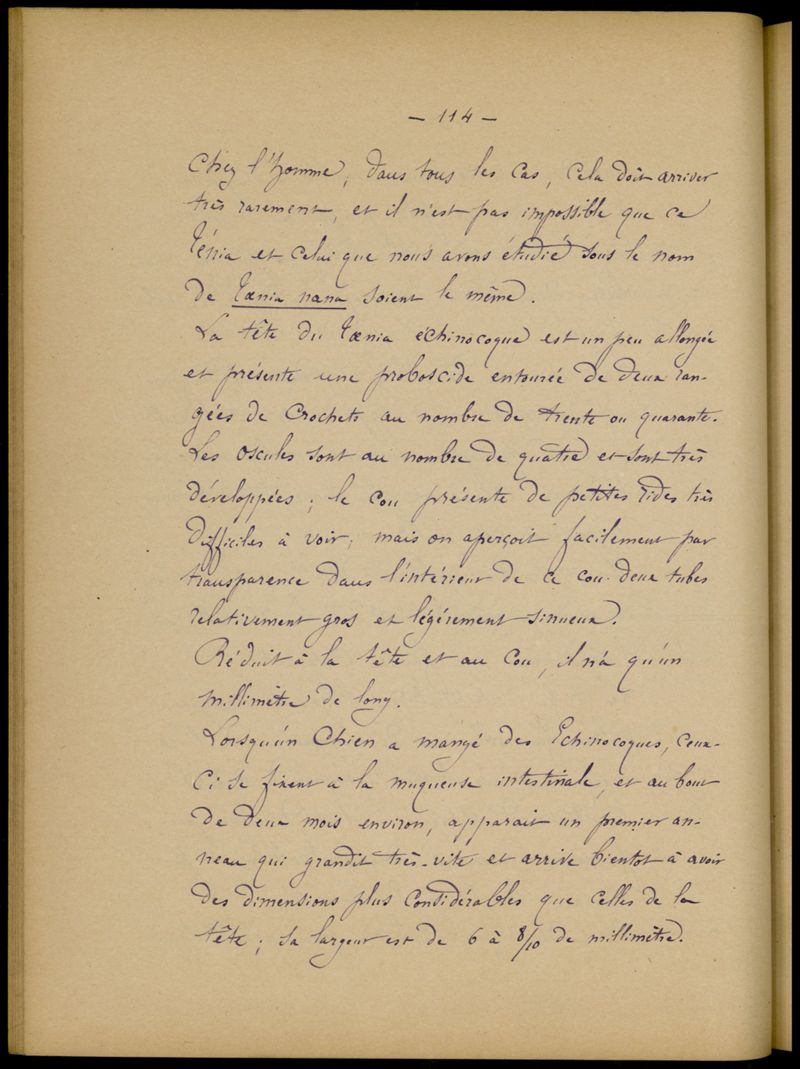 — 114 —
Chez l'homme, dans tous les cas, cela doit arriver
très rarement, et il n'est pas impossible que ce
Ténia et celui que nous avons étudié sous le nom
de Tænia nana soient le même.
La tête du Tænia echinocoque est un peu allongée
et présente une proboscide entourée de deux ran-
gées de crochets au nombre de trente ou quarante.
Les oscules sont au nombre de quatre et sont très
développées ; le cou présente de petites rides très
difficiles à voir, mais on aperçoit facilement par
transparence dans l'intérieur de ce cou deux tubes
relativement gros et légèrement sinueux.
Réduit à la tête et au cou, il n'a qu'un
millimètre de long.
Lorsqu'un Chien a mangé des Echinocoques, ceux-
ci se fixent à la muqueuse intestinale, et au bout
de deux mois environ, apparait un premier an-
neau qui grandit très-vite et arrive bientot à avoir
des dimensions plus considérables que celles de la
tête ; sa largeur est de 6 à 8/10 de millimètre.